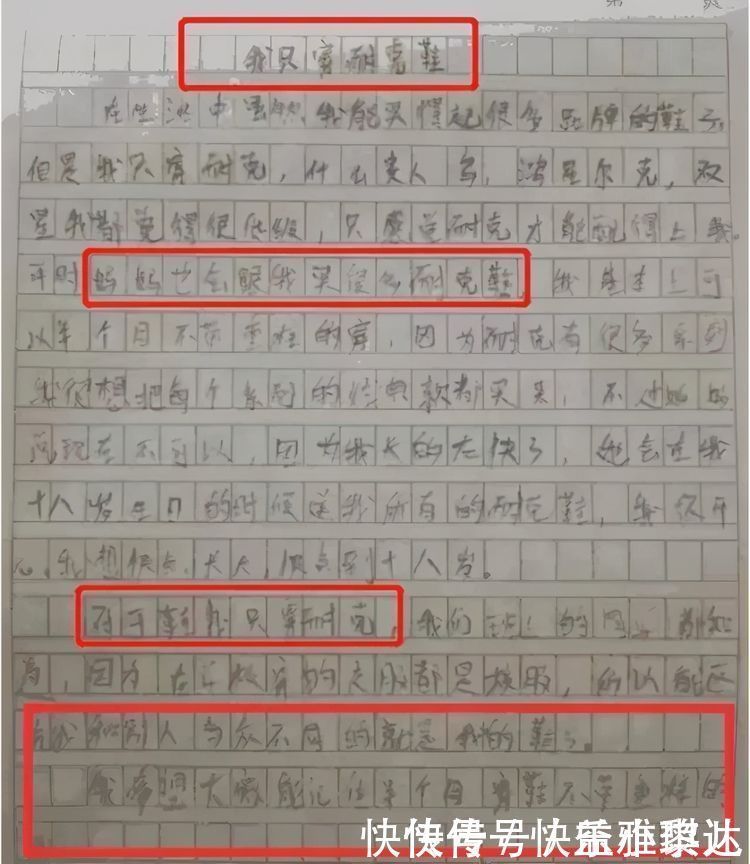 我只穿耐克鞋
在生活中虽然我能买得起很多品牌的鞋子，
但是我只穿耐克，什么贵人鸟，鸿星尔克，双
星我都觉得很低级，只感觉耐克才能配得上我。
平时妈妈也会跟我买很多耐克鞋，我基本上可
以半个月不带重样的穿，因为耐克有很多系列
我很想把每个系列的经典款都买来，不过妈妈
说现在不可以，因为我长的太快了，她会在我
十八岁生日的时候送我所有的耐克鞋，我很开
心，我想快点长大，快点到十八岁。
对于鞋我只穿耐克，我们班上的同 都知
，因为在学校穿的衣服都是校服，所以能区
我和别人与众不同的就是我的鞋子。
我希望大 能记住半个月穿鞋不带重样的
快传号/快盖雅琪达